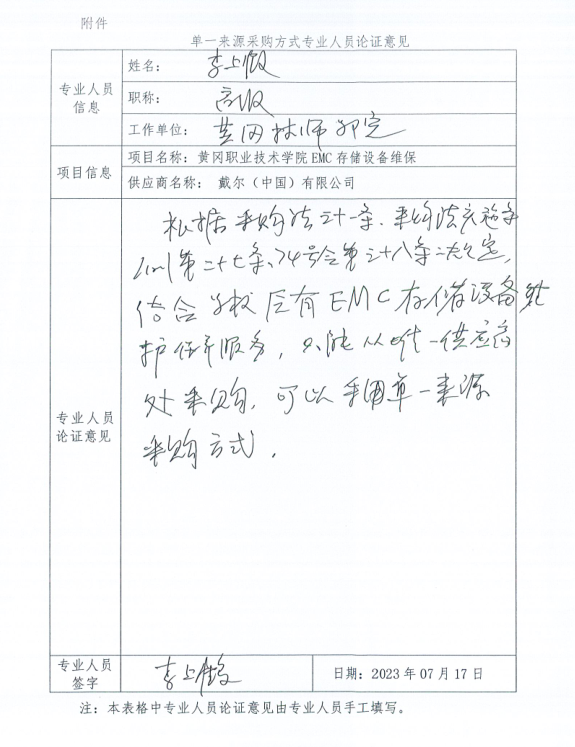 附件
单一来源采购方式专业人员论证意见
专业人员
信息
姓名：李上
职称：高级
工作单位：黄冈
项目信息
项目名称：黄冈职业技术学院EMC存储设备维保
供应商名称：戴尔（中国）有限公司
专业人员
论证意见
根据采购法三十一条、采购法实施条
例第二十七条、74号令第三十八条之规定，
结合学校原有EMC存储设备维
护 服务，只能从唯一供应商
处采购，可以采用单一来源
采购方式。
专业人员
签字
李上
日期：2023年07月17日
注：本表格中专业人员论证意见由专业人员手工填写。